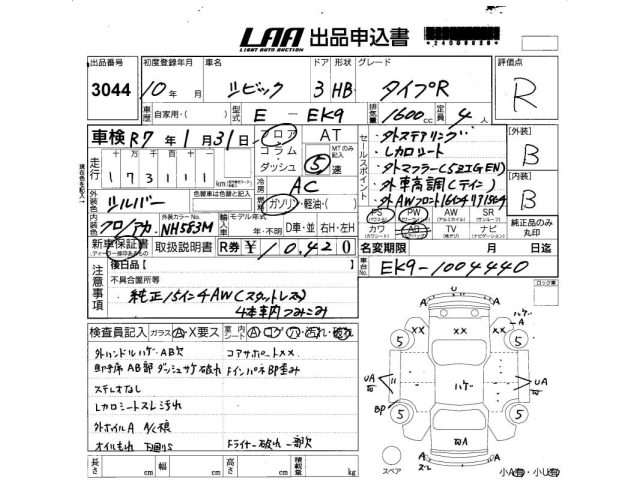 LAA 出品申込書
LIGHT AUTO AUCTION
出品番号 初度登録年月 車名 ドア 形状 グレード 評価点
3044 10年 月 シビック 3 HB タイプR R
車歴 自家用・( ) 型式 E-EK9 排気量 1600cc 定員 4人
車検 R7年1月31日 フロア・コラム・ダッシュ AT ⑤速 MTのみ記入
セールスポイント
・外ステアリング
・レカロシート
・外マフラー(5ZIGEN)
・外車高調(テイン)
[外装] B
[内装] B
走行 十万 万 千 百 十 一
173111 km
冷房 AC
外装色 シルバー 色替車は色替と記入 燃料 ガソリン・軽油・( )
内装色 クロ/アカ 外装カラーNo. NH583M 輸入車 モデル年式 年・不明 D車・並 右H・左H
PS PW AW SR
カワ AB TV ナビ
純正品のみ丸印
新車保証書 取扱説明書 R券 ¥10,420 名変期限 月 日迄
注意事項 後日品[ ]
不具合箇所等
・純正15インチAW(スタットレス)
4本車内つみこみ
車台No. EK9-1004440
ロック車
検査員記入 ガラス A・X要ス 室内シート A・コゲ・穴・汚れ・破れ
外ハンドルハゲ・AB欠 コアサポートXX
助手席AB部ダッシュサケ破れ FインパネBP歪み
ステレオなし
レカロシートスレ汚れ
外ホイルA A/C損
オイルもれ 下廻りS Fライナー破れ一部欠
長さ cm 幅 cm 高さ cm 積載量 kg
U A
A XX XX ハゲ A
5 5
UA ハゲ UA
BP
5 5
A A
スペア
小A有・小U有